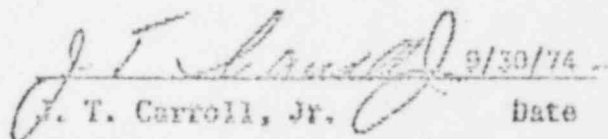 J. T. Carroll, Jr. 9/30/74
J. T. Carroll, Jr. Date